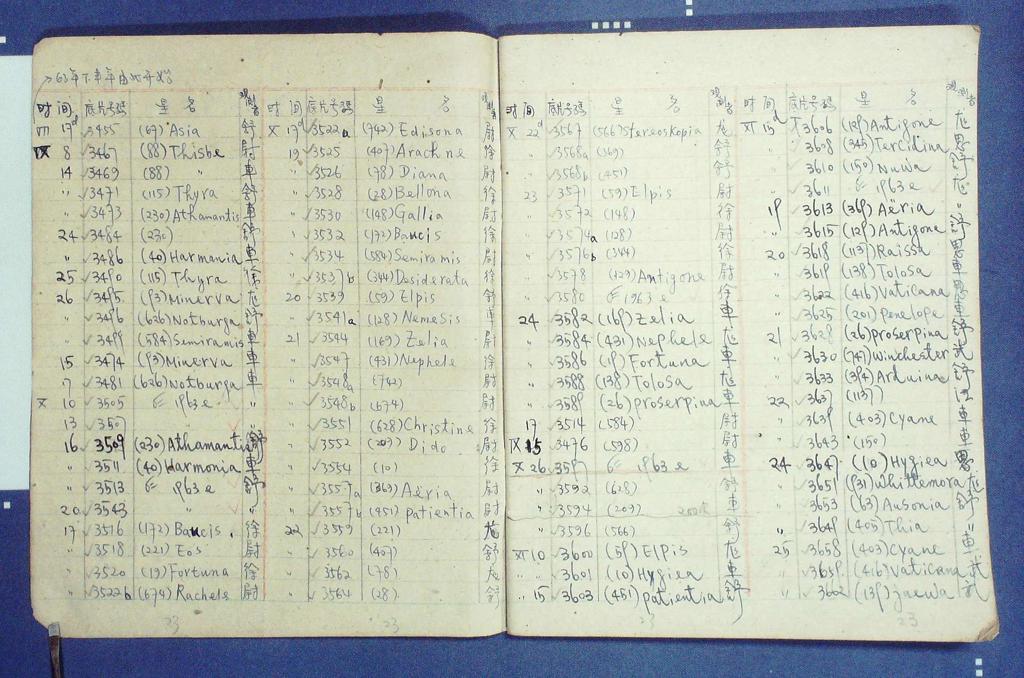 时间 底片号码 星名 观测者
VII 17d 3455 (67) Asia 舒
IX 8 3467 (88) Thisbe 尉
14 3469 (88) " 車
" 3471 (115) Thyra 舒
" 3473 (230) Athamantis 車
24 3484 (230) 舒
" 3486 (40) Harmonia 車
25 3490 (115) Thyra 徐
26 3495 (93) Minerva
" 3496 (626) Notburga
" 3499 (584) Semiramis 車
15 3474 (93) Minerva 車
17 3481 (626) Notburga 車
X 10 3505 1963e "
13 3507 " "
16 3509 (230) Athamantis 舒
" 3511 (40) Harmonia 車
" 3513 1963e 舒
20 3543 " "
17 3516 (172) Baucis 徐
" 3518 (221) Eos 尉
" 3520 (19) Fortuna 徐
" 3522b (674) Rachele 尉
23
时间 底片号码 星名 观测者
X 17d 3522a (742) Edisona 尉
19 3525 (407) Arachne 徐
" 3526 (78) Diana 尉
" 3528 (28) Bellona 徐
" 3530 (148) Gallia 尉
" 3532 (172) Baucis 徐
" 3534 (584) Semiramis 尉
" 3537b (344) Desiderata 徐
20 3539 (59) Elpis 舒
" 3541a (128) Nemesis 車
21 3544 (169) Zelia 尉
" 3547 (431) Nephele 徐
" 3548a (742) 尉
" 3548b (674) 尉
" 3551 (628) Christine 徐
" 3552 (209) Dido 尉
" 3554 (10) 徐
" 3557a (369) Aëria 尉
" 3557b (451) patientia 尉
22 3559 (221)
" 3560 (407) 舒
" 3562 (78)
" 3564 (28) 舒
23
时间 底片号码 星名 观测者
X 22d 3567 (566) Stereoskopia
" 3568a (369) 舒
" 3568b (451) 舒
23 3571 (59) Elpis 尉
" 3572 (148) 徐
" 3574a (128) 尉
" 3576b (344) 徐
" 3578 (129) Antigone 尉
" 3580 1963e 徐
24 3582 (169) Zelia 車
" 3584 (431) Nephele
" 3586 (19) Fortuna 車
" 3588 (138) Tolosa
" 3589 (26) proserpina 車
17 3514 (584) 尉
IX 15 3476 (598) 尉
X 26 3587 1963e 車
" 3592 (628) 舒
" 3594 (209) 車
" 3596 (566) 舒
XI 10 3600 (59) Elpis
" " 3601 (10) Hygiea 車
" 15 3603 (451) patientia 舒
23
时间 底片号码 星名 观测者
XI 15d 3606 (129) Antigone
" 3608 (345) Tercidina
" 3610 (150) Nuwa
" 3611 1963e
19 3613 (369) Aëria "
" 3615 (129) Antigone 舒
20 3618 (1137) Raissa
" 3619 (138) Tolosa 車
" 3622 (416) Vaticana
" 3625 (201) penelope 車
21 3628 (26) proserpina 舒
" 3630 (747) Winchester 武
" 3633 (394) Arduina 舒
22 3637 (1137)
" 3639 (403) Cyane 車
" 3643 (150) 車
24 3647 (10) Hygiea
" 3651 (931) Whittemora
" 3653 (63) Ausonia 舒
" 3649 (405) Thia "
25 3658 (403) Cyane 車
" 3659 (416) Vaticana 武
" 3662 (139) Juewa
23